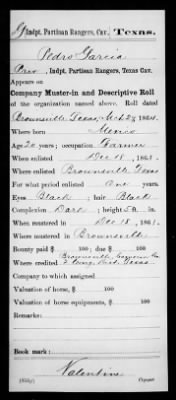 G | Indpt. Partisan Rangers, Cav. | Texas.
Pedro Garcia
Priv, Indpt. Partisan Rangers, Texas Cav.
Appears on
Company Muster-in and Descriptive Roll
of the organization named above. Roll dated
Brownsville Texas, Mch 28, 1864.
Where born Mexico
Age 20 years; occupation Farmer
When enlisted Dec 18, 1863.
Where enlisted Brownsville Texas
For what period enlisted One years.
Eyes Black; hair Black
Complexion Dark; height 5 ft. in.
When mustered in Dec 18, 1863.
Where mustered in Brownsville
Bounty paid $ 100; due $ 100
Brownsville, Cameron Co
Where credited Texas
Company to which assigned
Valuation of horse, $ 100
Valuation of horse equipments, $ 100
Remarks:
Book mark:
Valentine
Copyist.